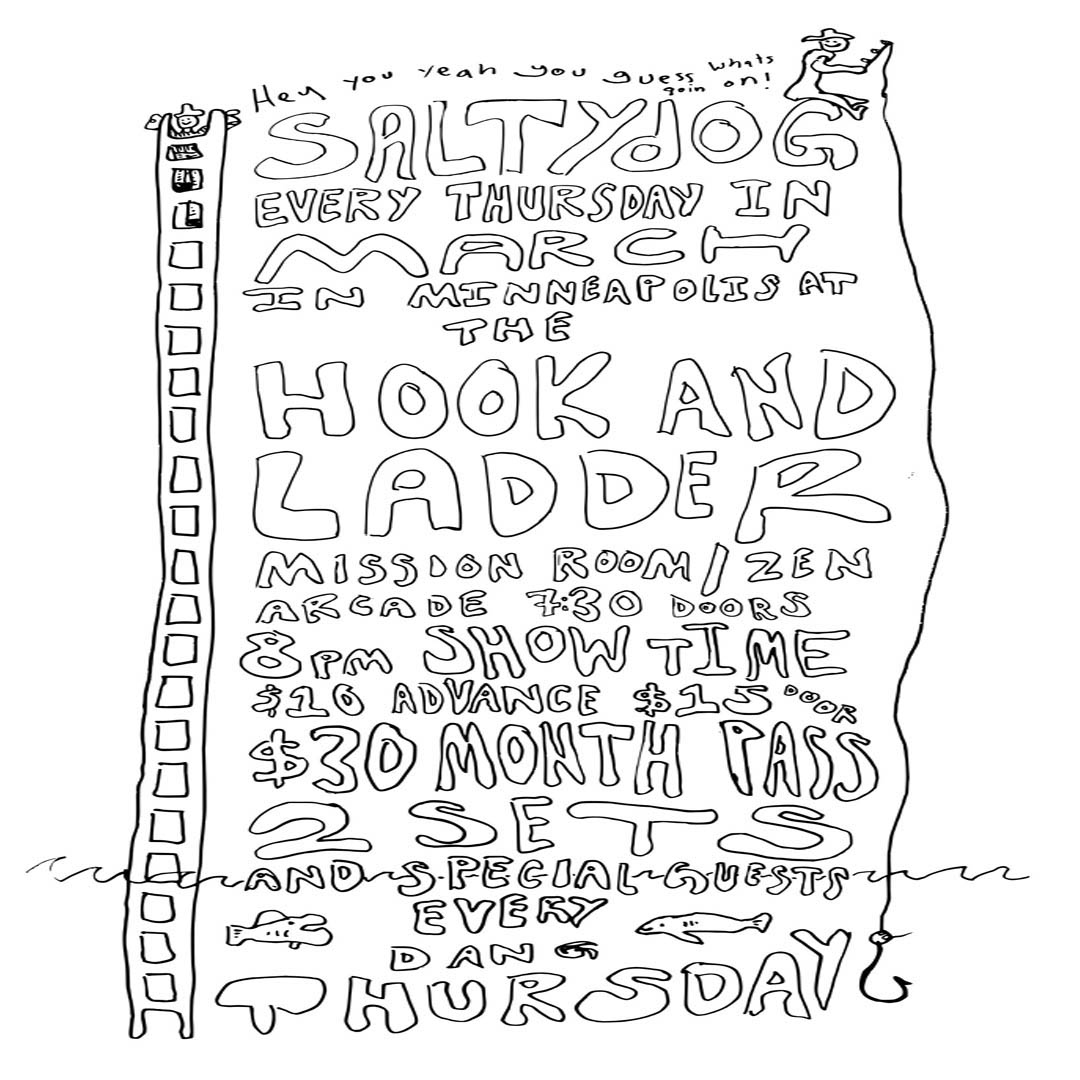 Hey you yeah you guess whats
goin on!
SALTYdOG
EVERY THURSDAY IN
MARCH
IN MINNEAPOLIS AT
THE
HOOK AND
LADDER
MISSION ROOM/ZEN
ARCADE 7:30 DOORS
8PM SHOW TIME
$10 ADVANCE $15 DOOR
$30 MONTH PASS
2 SETS
AND SPECIAL GUESTS
EVERY
DANG
THURSDAY